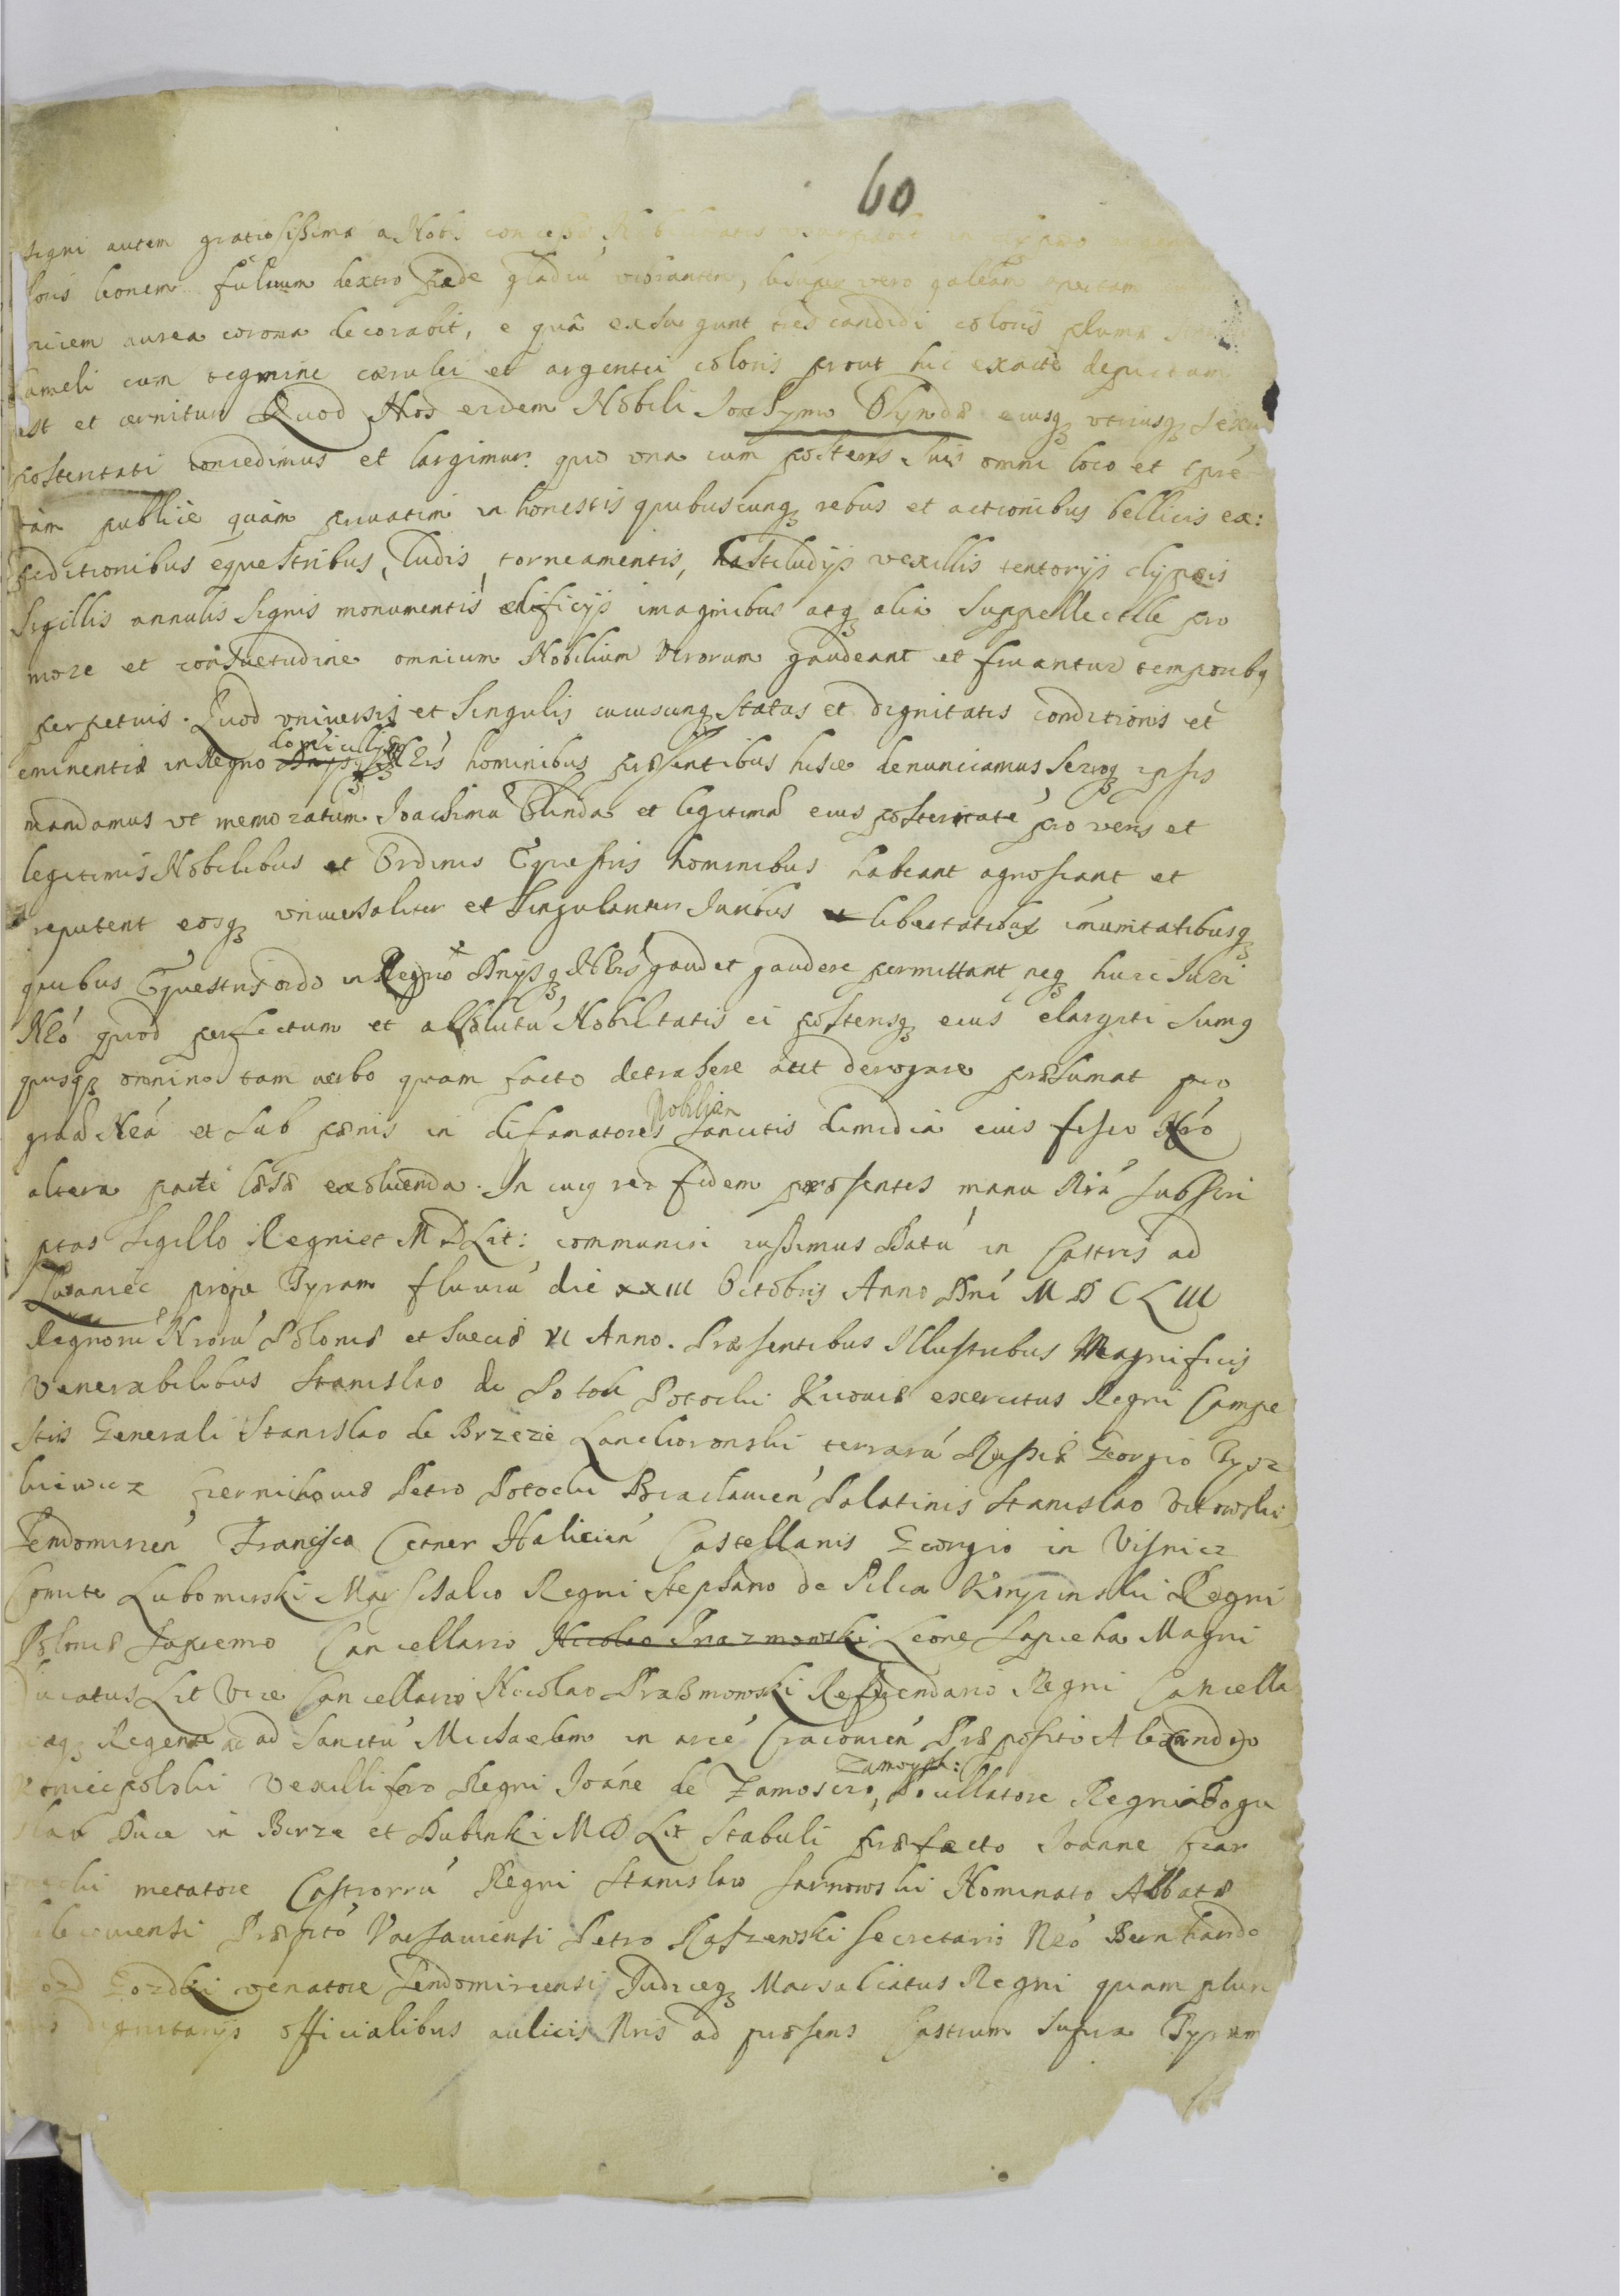 60
signi autem gratiosissima a Nobis concessa
loris leonem fuluum dextro pede gladiũ vibrantem, desuper vero galeam apertam
niem aurea corona decorabit, e quâ exsurgunt tres candidi coloris plumæ
lameli cum tegmine cærulei et argentei coloris prout hic exacte depictam
est et cernitur Quod Nos eidem Nobili Joachymo Blyndæ eiusqꝫ vtriusqꝫ sexu
posteritati concedimus et largimur quo vna cum posteris suis omni loco et tpre
tàm publicè quàm priuatim in honestis quibuscunqꝫ rebus et actionibus bellicis ex:
peditionibus equestribus, ludis, torneamentis, hastiludijs vexillis tentorijs clypeis
Sigillis annulis signis monumentis ædificijs imaginibus atqꝫ alia suppellectile pro
more et consuetudine omnium Nobilium Virorum gaudeant et fruantur temporibq
perpetuis. Quod vniversis et singulis cuiuscunqꝫ status et dignitatis conditionis et
eminentiæ in Regno hominibus præsentibus hisce denunciamus ipsis
mandamus vt memoratum Joachimũ Blinda et legitimã eius posteritatẽ pro veris et
legitimis Nobilibus et Ordinis Equestris hominibus habeant agnoscant et
reputent eosqꝫ vniuersaliter et singulariter Juribus et libertatibus imunitatibusqꝫ
quibus Equestris ordo in Regno Dnijsqꝫ Nris gaudet gaudere permittant neqꝫ huic Juri
Nro quod perfectum et absolutũ Nobilitatis ei posterisqꝫ eius elargiti sumq
quisqꝫ omnino tam verbo quam facto detrahere aut derogare præsumat pro
gratia Nra et sub pænis in difamatores Nobilium sancitis dimidia eius fisco Nro
altera parte læsæ exoluenda. In cuiq rei fidem præsentes manu Nra subscri
ptas Sigillo Regni et M D Lit: communiri iussimus Datũ in Castris ad
Zwaniec prope Tyram fluuiũ die xxiii Octobris Anno Dni M D C L III
Regnorũ Nrorũ Poloniæ et Sueciæ vi Anno. Præsentibus Illustribus Magnificis
Venerabilibus Stanislao de Potok Potocki Kiiouiæ exercitus Regni Campe
stris Generali Stanislao de Brzezie Lanckoronski terrarũ Russiæ Georgio Tysz
kiewicz Czernichouiæ Petro Potocki Braclauien Palatinis Stanislao Witowski
Sendomirien Francisco Cetner Halicien Castellanis Georgio in Visnicz
Comite Lubomirski Marschalco Regni Stephano de Pilca Korycinski Regni
Poloniæ Supremo Cancellario Nicolao Prazmowski Leone Sapieha Magni
Ducatus Lit Vice Cancellario Nicolao Prażmowski Referendario Regni Cancella
æqꝫ Regente ac ad Sanctũ Michaelem in arce Cracouien Præposito Alexandro
Koniecpolski Vexillifero Regni Joãne de Zamoscio Zamoysk: Pocillatore Regni Bogu
slao Duce in Birze et Dubinki M D Lit Stabuli præfecto Joanne Czar
necki metatore Castrorũ Regni Stanislao Sarnowski Nominato Abbate
Præpto Varsauiensi Petro Secretario Nro Bernhardo
venatore Sendomiriensi Judiceqꝫ Marsalcatus Regni quam pluri
mis dignitarijs officialibus aulicis Nris ad præsens Castrum supra Tyram